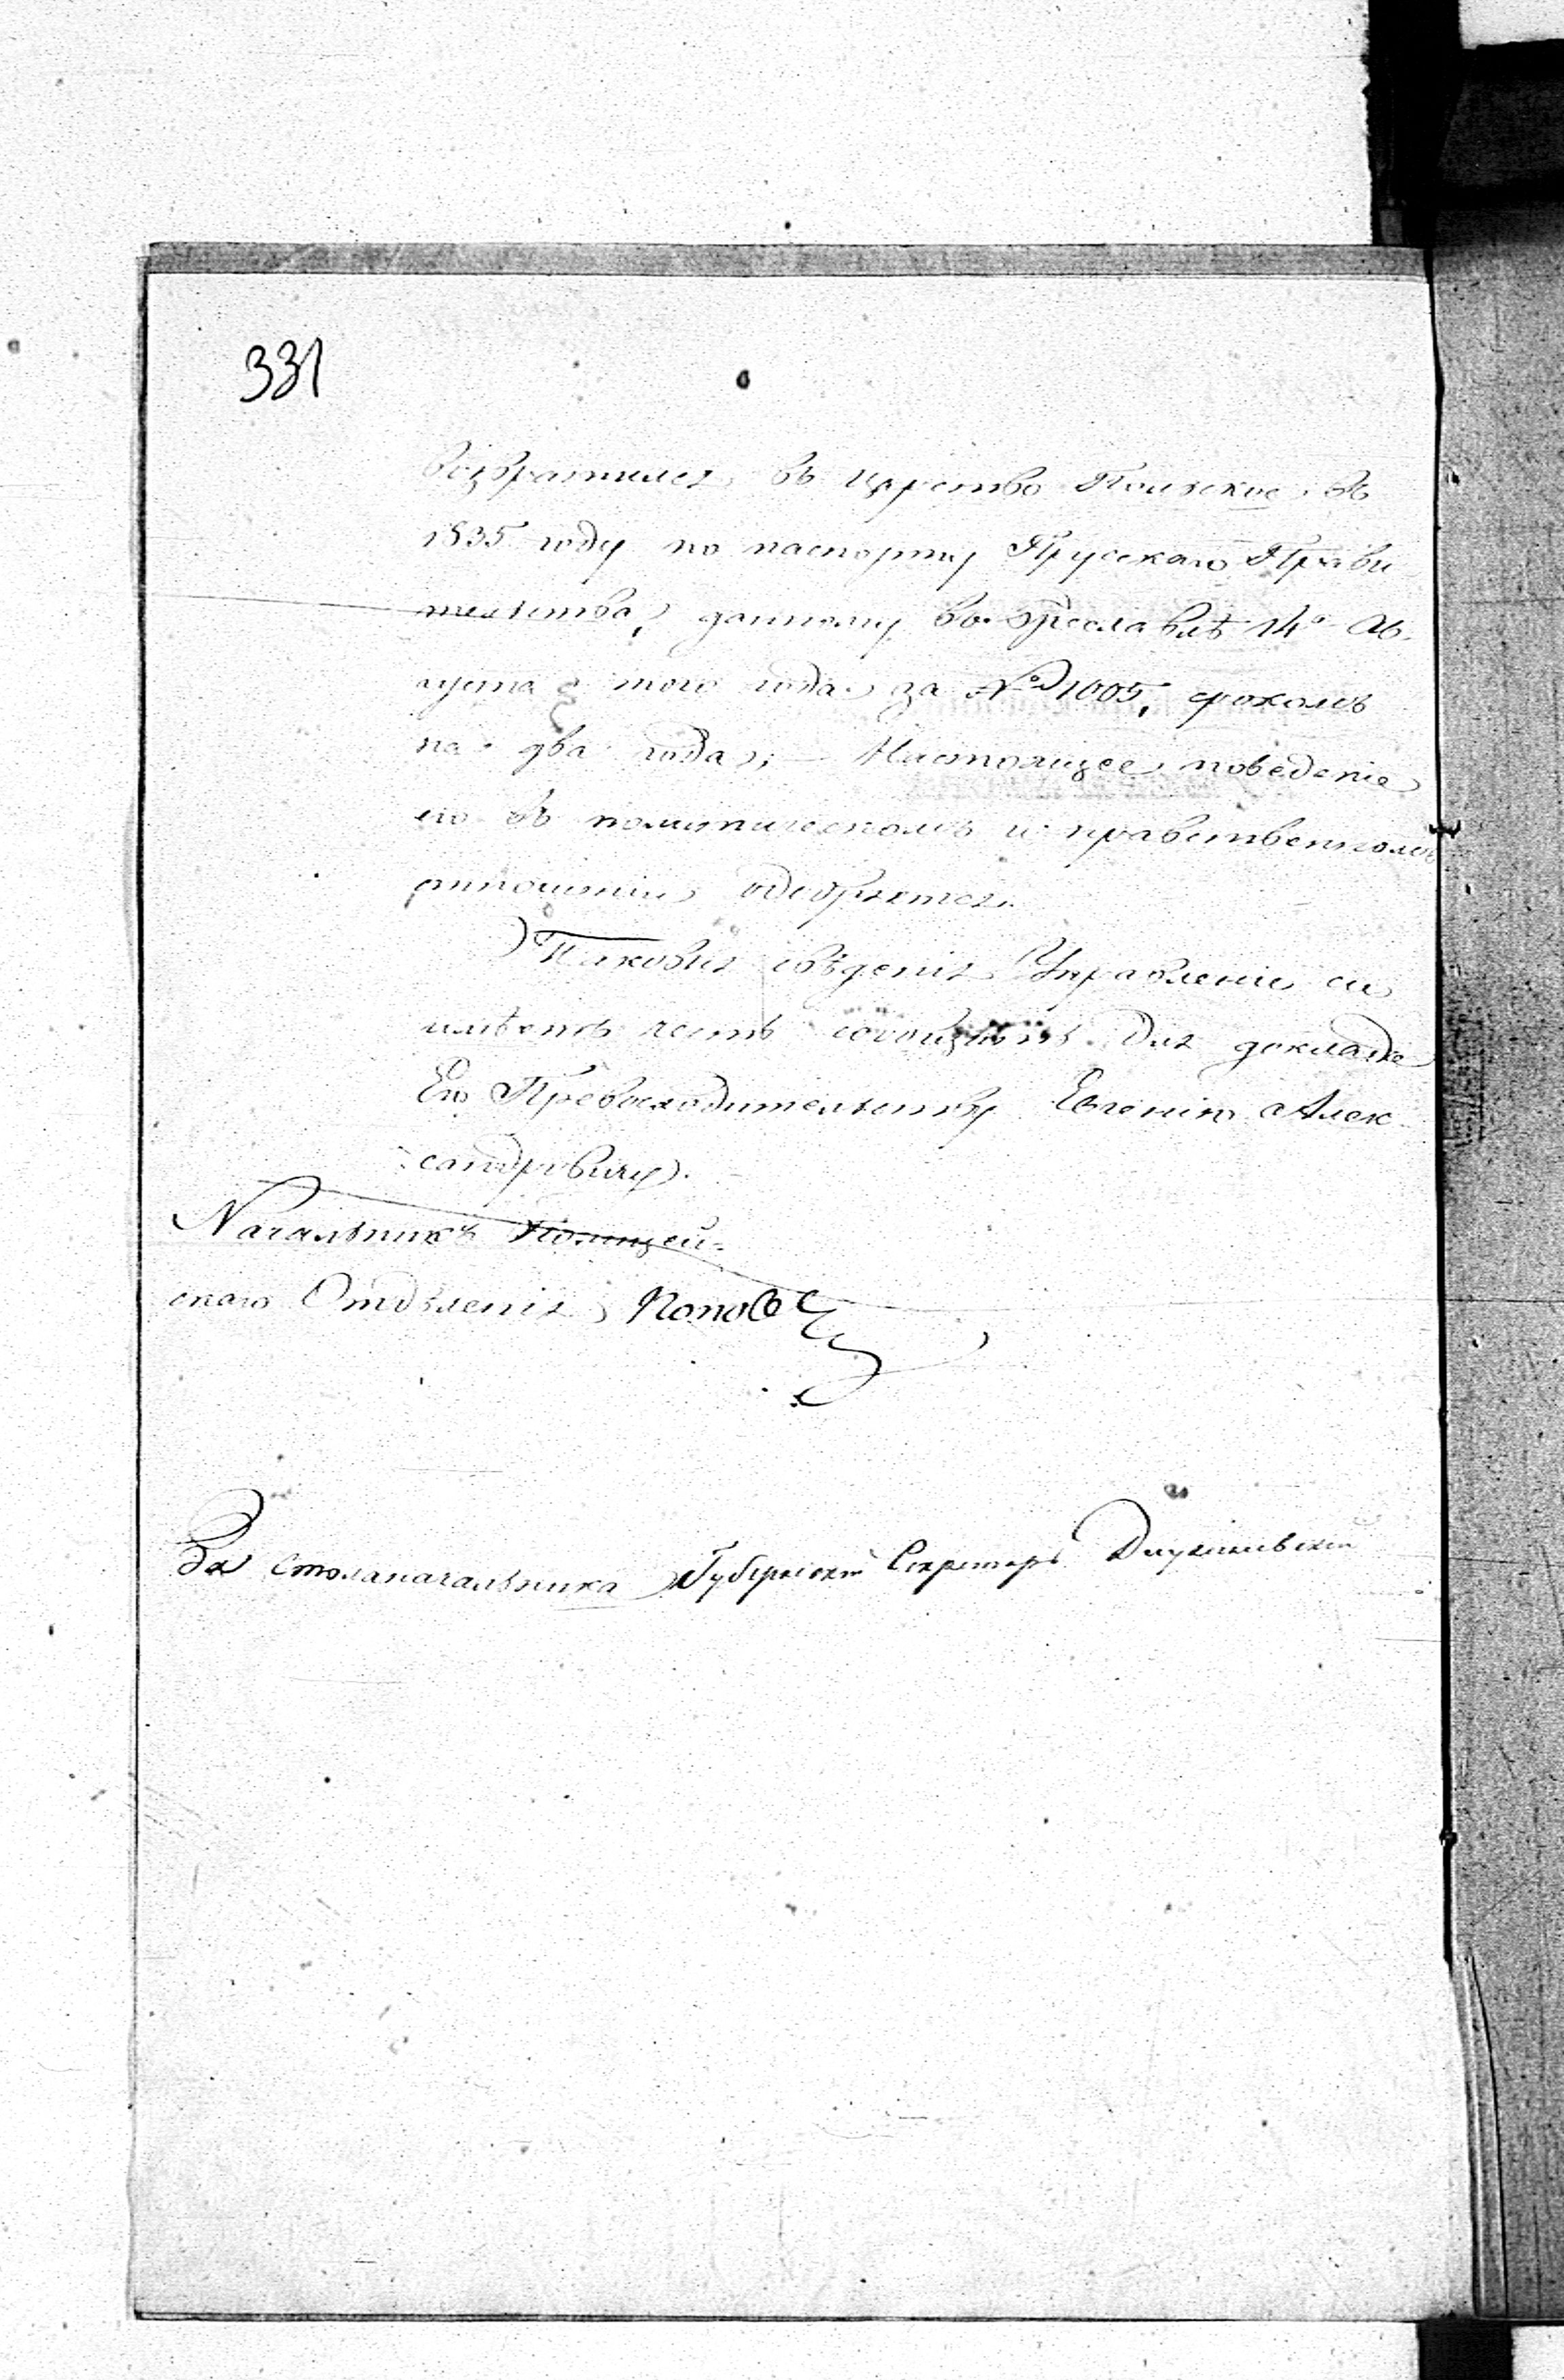 331
возвратился въ Царство Польское въ
1835 году по паспорту Прусскаго Прави
тельства, данному въ Бреславлѣ 14º Ав-
густа того года за № 1005, срокомъ
на два года; — Настоящее поведеніе
его въ политическомъ и нравственномъ
отношеніи одобряется.
Таковыя свѣденія Управленіе сіе
имѣетъ честь сообщить для доклада
Его Превосходительству Евгенію Алек
сандровичу.
Начальникъ Полицей-
скаго Отдѣленія Поповъ
За Столоначальника Губернскій Секретарь